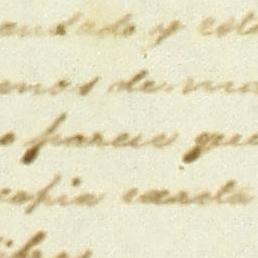 andado y est
nos de ma
parece que
copia exacta